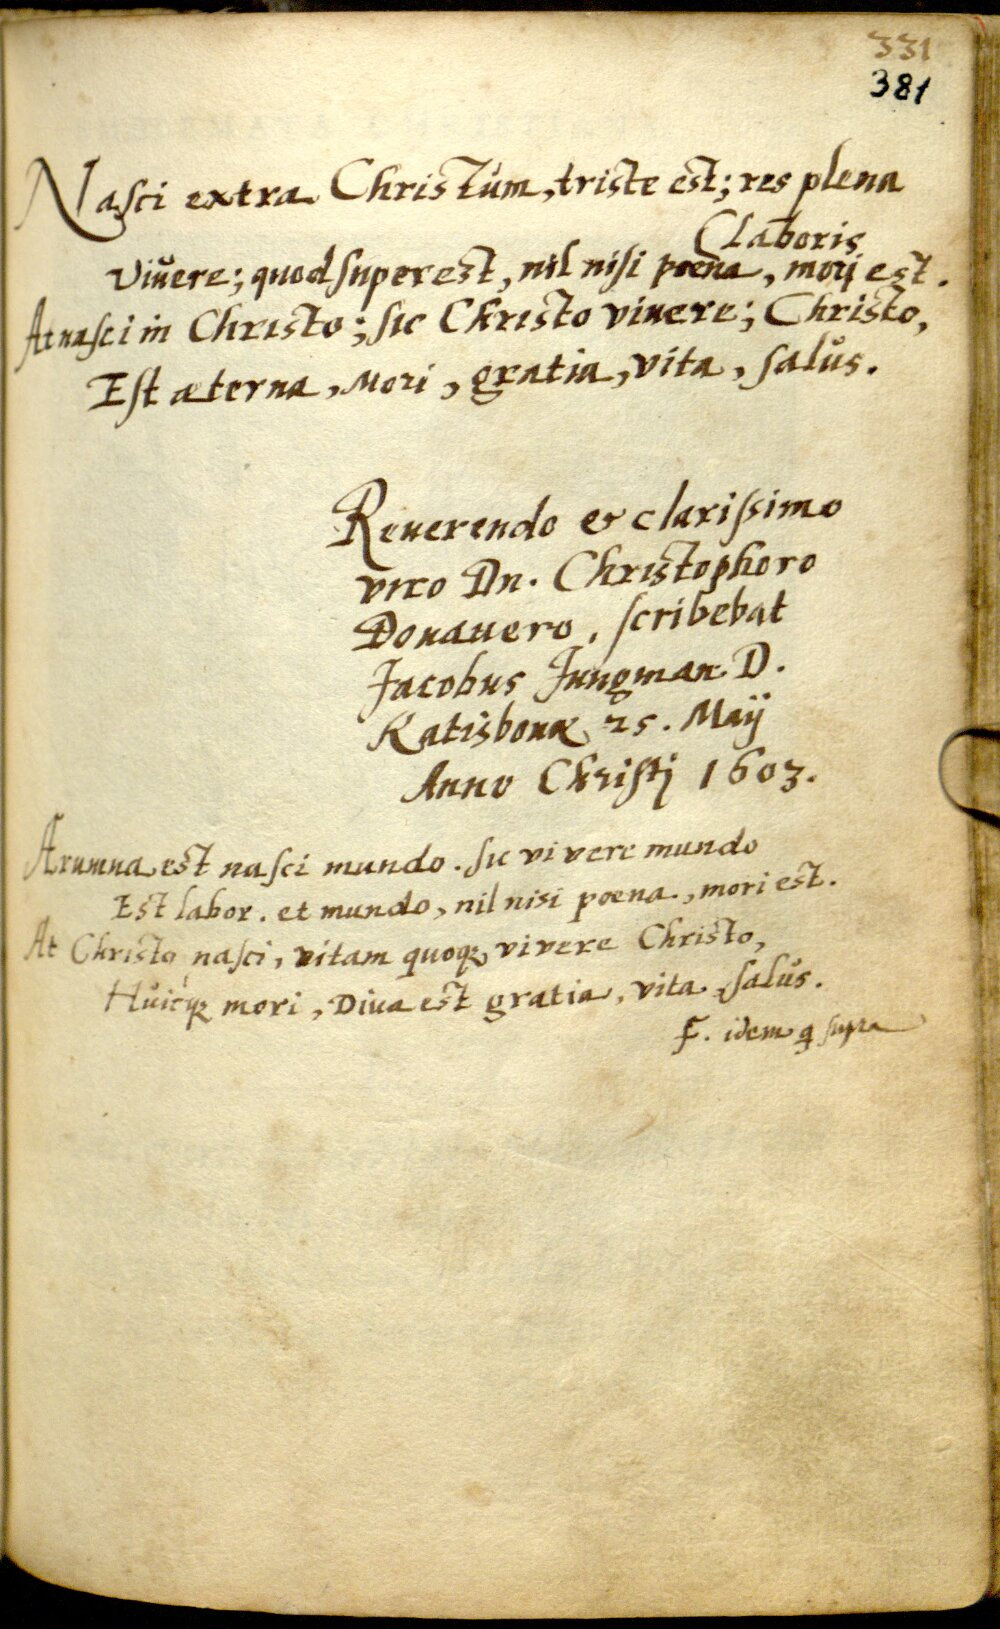 331
381
Nasci extra Christum, triste est; res plena
laboris
Viuere; quod superest, nil nisi poena, morj est.
At nasci in Christo; sic Christo viuere; Christo,
Est æterna, Mori, gratia, vita, salus.
Reuerendo et clarissimo
viro Dn. Christophoro
Donauero, scribebat
Jacobus Jungman D.
Ratisbonæ 25. Maÿ
Anno Christj 1603.
Ærumna est nasci mundo. sic vivere mundo
Est labor. et mundo, nil nisi poena, mori est.
At Christo nasci, vitam quoqꝫ vivere Christo,
Huicqꝫ mori, Diua est gratia, vita, salus.
F. idem q supra